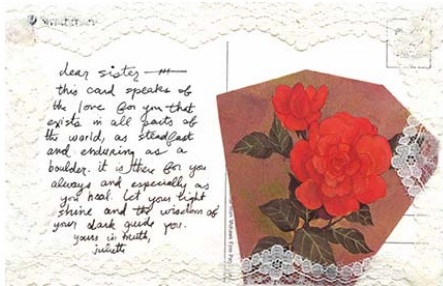 dear sister —
this card speaks of
the love for you that
exists in all parts of
the world, as steadfast
and enduring as a
boulder. it is there for you
always and especially as
you heal. let your light
shine and the wisdom of
your dark guide you.
yours in truth,
juliette